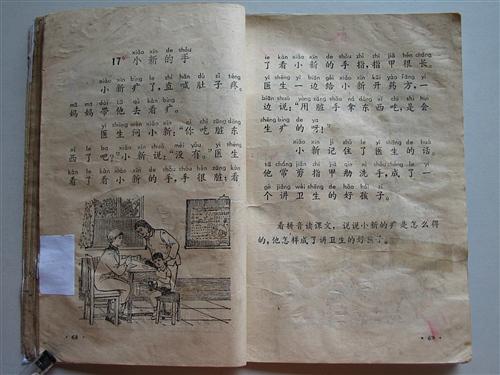 xiǎo xīn de shǒu
17 小新的手
xiǎo xīn bìng le zhí hǎn dù zi téng
小新疒了，直喊肚子疼。
mā ma dài tā qù kàn bìng
妈妈带他去看疒。
yī shēng wèn xiǎo xīn nǐ chī zāng dōng
医生问小新：“你吃脏东
xi le ba xiǎo xīn shuō méi yǒu yī shēng
西了吧？”小新说：“没有。”医生
kàn le kàn xiǎo xīn de shǒu shǒu hěn zāng kàn
看了看小新的手，手很脏；看
· 68 ·
le kàn xiǎo xīn de shǒu zhǐ zhǐ jiǎ hěn cháng
了看小新的手指，指甲很长。
yī shēng yī biān gěi xiǎo xīn kāi yào fāng yī
医生一边给小新开药方，一
biān shuō yòng zāng shǒu ná dōng xi chī shì huì
边说：“用脏手拿东西吃，是会
shēng bìng de ya
生疒的呀！”
小新记住了医生的话。
tā cháng jiǎn zhǐ jiǎ qín xǐ shǒu chéng le yī
他常剪指甲勤洗手，成了一
gè jiǎng wèi shēng de hǎo hái zi
个讲卫生的好孩子。
看拼音读课文，说说小新的疒是怎么得
的，他怎样成了讲卫生的好孩子。
· 69 ·